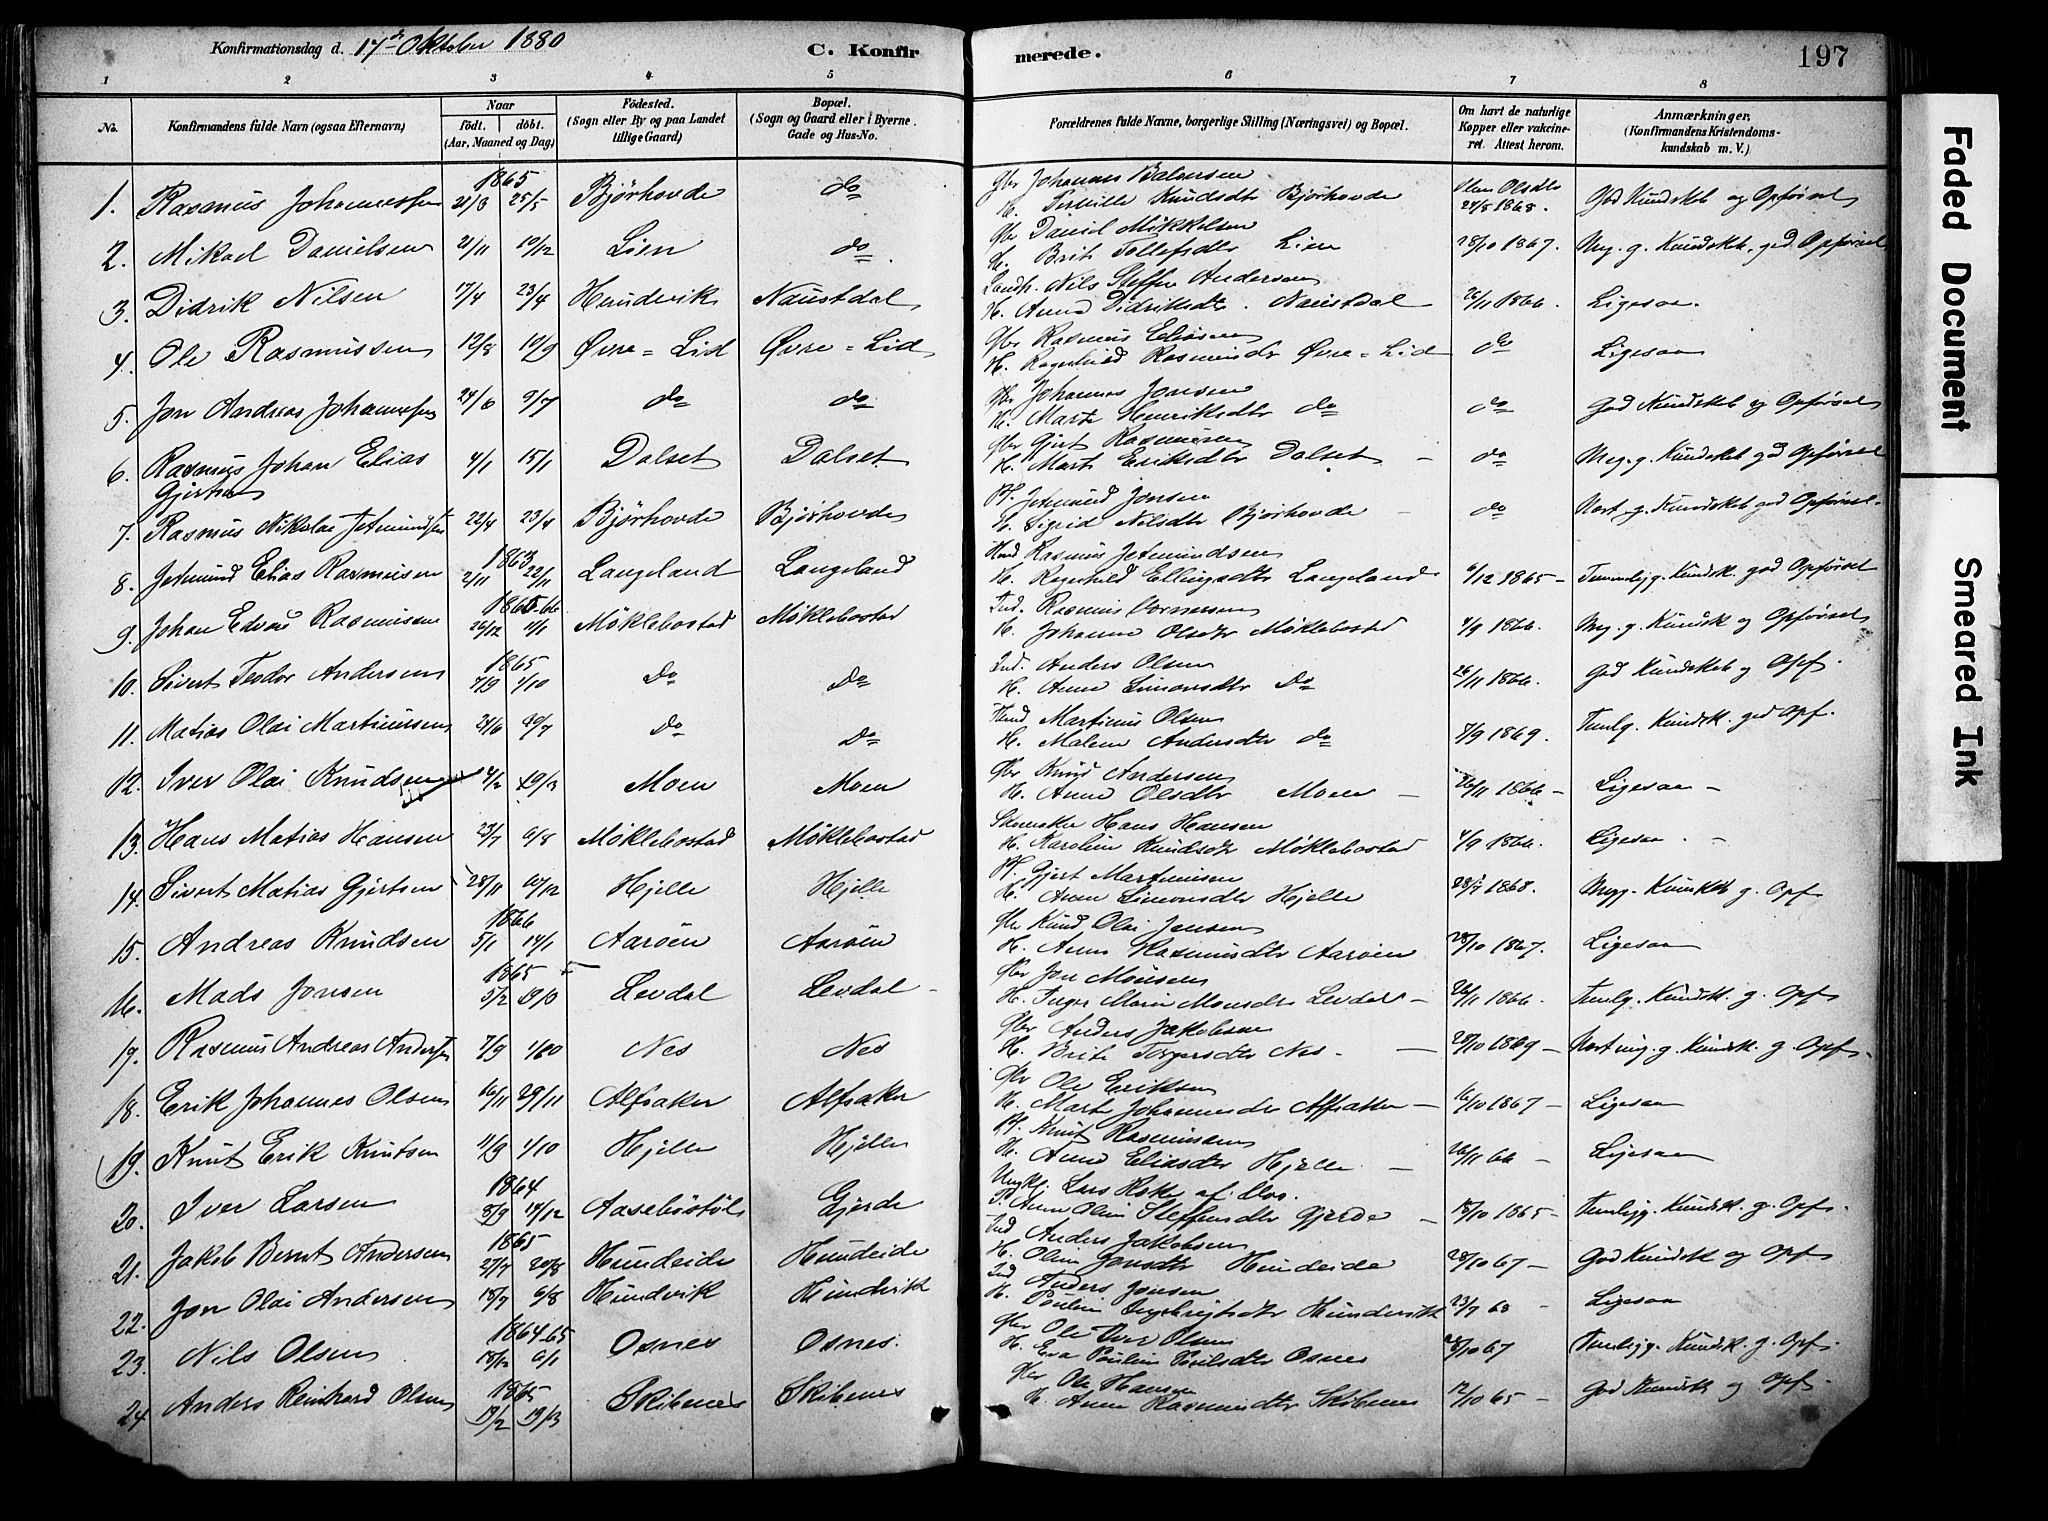 Konfirmationsdag d. 17de Oktober 1880
C. Konfirmerede.
197
1 2 3 4 5 6 7 8
No.
Konfirmandens fulde Navn (ogsaa Efternavn)
Naar
födt. döbt.
(Aar, Maaned og Dag)
Födested.
(Sogn eller By og paa Landet
tillige Gaard)
Bopæl.
(Sogn og Gaard eller i Byerne
Gade og Hus-No.
Forældrenes fulde Navne, borgerlige Stilling (Næringsvei) og Bopæl.
Om havt de naturlige
Kopper eller vakcine-
ret. Attest herom.
Anmærkninger.
(Konfirmandens Kristendoms-
kundskab m. V.)
1865
1. Rasmus Johannessen 25/5 Bjørhovde do
Gbr Johannes
H. Pernille Knudsdtr Bjørhovde 1868. God Kundskab og Opførsel
2. Mikael Danielsen 21/11 10/12 Lien do
Gbr Daniel Mikkelsen
H. Brit Tollefsdtr Lien 28/10 1867. Meg. g. Kundskab, god Opførsel
3. Didrik Nilsen 17/4 23/4 Hundvik Naustdal
Nils Steffen Andersen
H. Anna Didriksdtr. Naustdal 26/11 1866. Ligesaa.
4. Ole Rasmussen 12/8 10/9 Øvre=Lid Øvre=Lid
Gbr Rasmus Eliasen
H. Ragnhild Rasmusdtr Øvre=Lid do Ligesaa
5. Jon Andreas Johannesen 24/6 9/7 do do
Gbr Johannes Jonsen
H. Marte Henriksdtr do do God Kundskab og Opførsel
6. Rasmus Johan Elias
Gjertsen 4/1 15/1 Dalset Dalset
Gbr Gjert Rasmusen
H. Marte Eriksdtr Dalset – do Meg. g. Kundskab god Opførsel
7. Rasmus Nikolai Jetmundsen 22/4 23/4 Bjørhovde Bjørhovde
Jetmund Jonsen
H. Sigrid Nilsdtr Bjørhovde – do g. Kundskab god Opførsel.
1863
8. Jetmund Elias Rasmusen 2/11 22/11 Langeland Langeland
Rasmus Jetmundsen
H. Ragnhild Ellingsdtr Langeland 6/12 1865 – Temmelig g. Kundsk. god Opførsel
1865-66
9. Johan Edvard Rasmusen 26/12 1/1 Møklebostad Møklebostad
Ind. Rasmus
H. Johanne Olsdtr Møklebostad 4/9 1866. Meg. g. Kundsk og Opførsel
1865
10. Sivert Teodor Andersen 7/9 1/10 Do Do
Ind. Anders Olsen
H. Anne Simonsdtr Do 26/11 1866. God Kundskab og Opf.
11. Matias Olai Martinussen 24/6 30/7 do do
Martinus Olsen
H. Malene Andersdtr do 7/9 1869. Temlg. Kundsk. god Opf.
12. Iver Olai Knudsen 4/2 19/3 Moen Moen
Gbr Knud Andersen
H. Anne Olsdtr Moen – 26/11 1866 – Ligesaa –
13. Hans Matias Hansen 23/7 6/8 Møklebostad Møklebostad
Hans Hansen
H. Karoline Knudsdtr Møklebostad 4/9 1866. Ligesaa. –
14. Sivert Matias Gjertsen 28/11 10/12 Hjelle Hjelle
Gjert Martinusen
H. Anne Simonsdtr Hjelle 1868. Megg. Kundskb g. Opf
1866
15. Andreas Knudsen 5/1 14/1 Aarøen Aarøen
Gbr Knud Olai Jensen
H. Anne Rasmusdtr Aarøen 28/10 1867. Ligesaa
1865
16. Mads Jonsen 5/2 19/3 Levdal Levdal –
Gbr Jon Monsen
H. Inger Marie Monsdtr Levdal – 26/11 1866. Temlg. Kundsk. g. Opf
17. Rasmus Andreas Andersen 7/9 1/10 Nes Nes
Gbr Anders Jakobsen
H. Brite Torgersdtr Nes. – 28/10 1869 – g. Kundsk. g. Opf.
18. Erik Johannes Olsen 16/11 29/11 Alfsaker Alfsaker
Gbr Ole Eriksen
H. Marte Johannesdtr Alfsaker – 16/10 1867 – Ligesaa
19. Knut Erik Knutsen 11/9 1/10 Hjelle Hjelle
Knut Rasmussen
H. Anne Eliasdtr Hjelle – 26/11 66 – Ligesaa
1864
20. Iver Larsen 8/9 14/12 Aasebøstøl Gjerde
Ungkf. Lars af
P. Anne Olin Steffensdtr Gjerde – 18/10 1865 – Temligg. Kundsk. g. Opf.
1865
21. Jakob Bernt Andersen 27/7 20/8 Hundeide Hundeide
Ind Anders Jakobsen
H. Oline Jonsdtr Hundeide 28/10 67 – God Kundsk og Opf
22. Jon Olai Andersen 18/7 6/8 Hundvik Hundvik
Ind Anders Jonsen
H. Pauline Ingebrigtsdtr Hundevik 23/7 68 – Ligesaa
1864-65
23. Nils Olsen 18/12 6/1 Osnes Osnes.
Gbr Ole Iver Olsen
H. Eva Pauline Osnes 28/10 67 Temligg. Kundsk. g. Opf.
1865
24 Anders Reinhard Olsen 19/2 19/3 Skibenes Skibenes
Gbr Ole Hansen
H. Anne Rasmusdtr Skibenes 12/10 65 – God Kundsk og Opf.
Faded Document
Smeared Ink